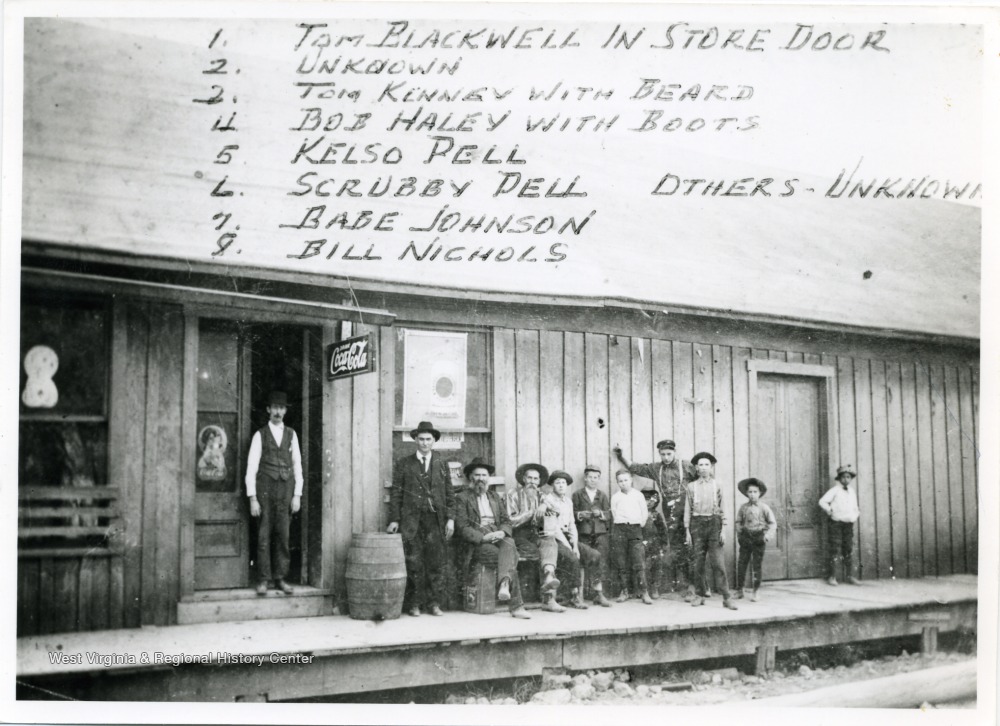 1. Tom Blackwell in Store Door
2. Unknown
3. Tom Kenney with Beard
4 Bob Haley with Boots
5 Kelso Pell
6. Scrubby Pell Others - Unknown
7. Babe Johnson
8. Bill Nichols
Coca-Cola
West Virginia & Regional History Center